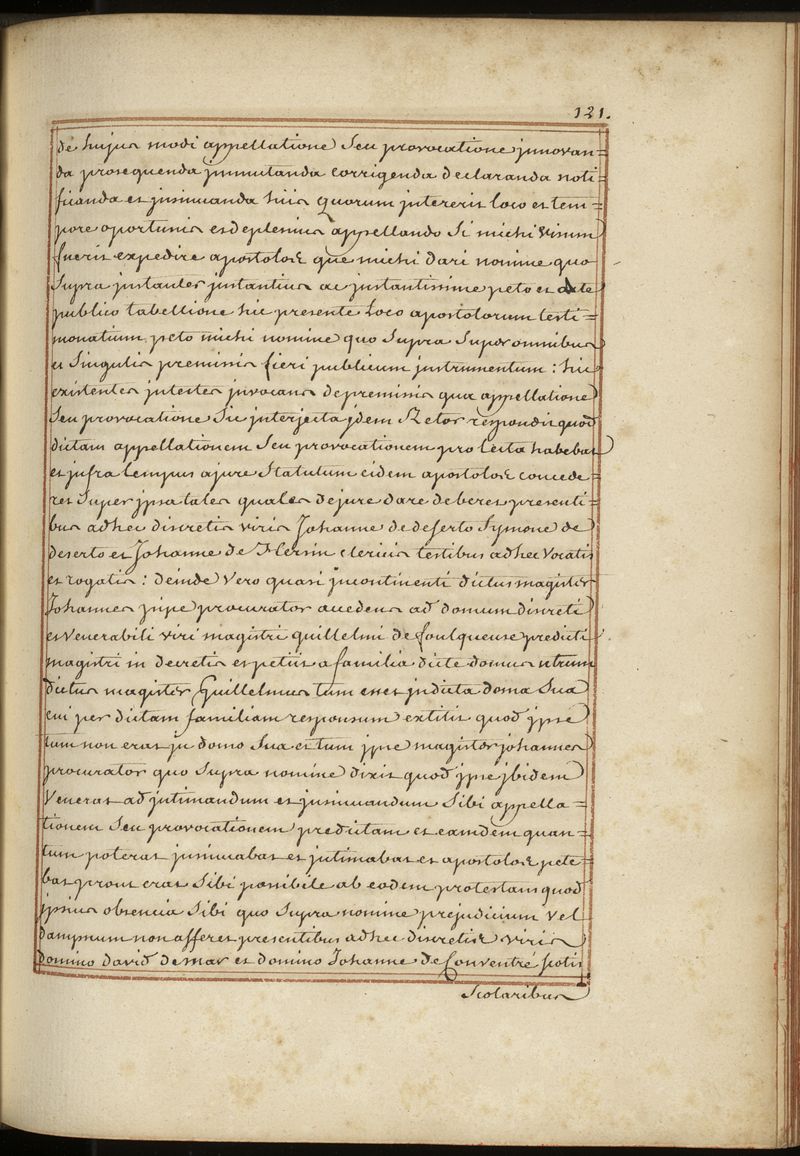 121.
de hujus modi appellatione Seu provocatione jnnovan=
da prosequenda jmmutanda corrigenda declaranda noti=
ficanda et jnsinuanda hiis quorum jntererit loco et tem=
pore oportunis et deplenius appellando Si michi visum
fuerit expedire apostolos que michi dari nomine quo
Supra jnstanter jnstantius ac jnstantissime peto et a te
publico tabellione hic presente Loco apostolorum testi=
monatium peto michi nomine quo Supra Super omnibus
et Singulis premissis fieri publicum jnstrumentum: hic
existentes jntestes jnvocans de premissis qua appellatione
Seu provocatione Sic jnterjecta jdem Rector respondit quod
dictam appellationem Seu provocationem pro lecta habebat
et jnfra tempus ajure Statutum eidem apostolos concede
ret Super jpsa tales quales de jure dare deberet presenti=
bus adhec discretis viris Johanne de deserto Symone de
deserto et Johanne de Hersin clericis testibus adhec vocatis
et rogatis: deinde vero quasi jncontinenti dictus magister
Johannes jnpe procurator accedens ad domum discreti
et venerabili viri magistri guillelmi de foulqueuse predicti
magistri in decretis et petiit a familia dicte domus utrum
dictus magister Guillelmus tum esset jndicta doma Sua
cui per dictam familiam responsum extitit quod jpse
tum non erat jn domo Sua et tum jpse magistor johannes
procurator quo Supra nomine dixit quod jpse jbidem
Venerat ad jntimandum et jnsinuandum Sibi appella=
tionem Seu provocationem predictam et eamdem quan=
tum poterat jnsinuabat et jntimabat et apostolos pete=
bat prout erat Sibi possibile ab eodem protestans quod
jpsius obsencia Sibi quo Supra nomine prejudicium vel
dampnum non afferet presentibus adhec discretis viris
domino david de mar et domino Johanne de Conventré scotis
Scolaribus